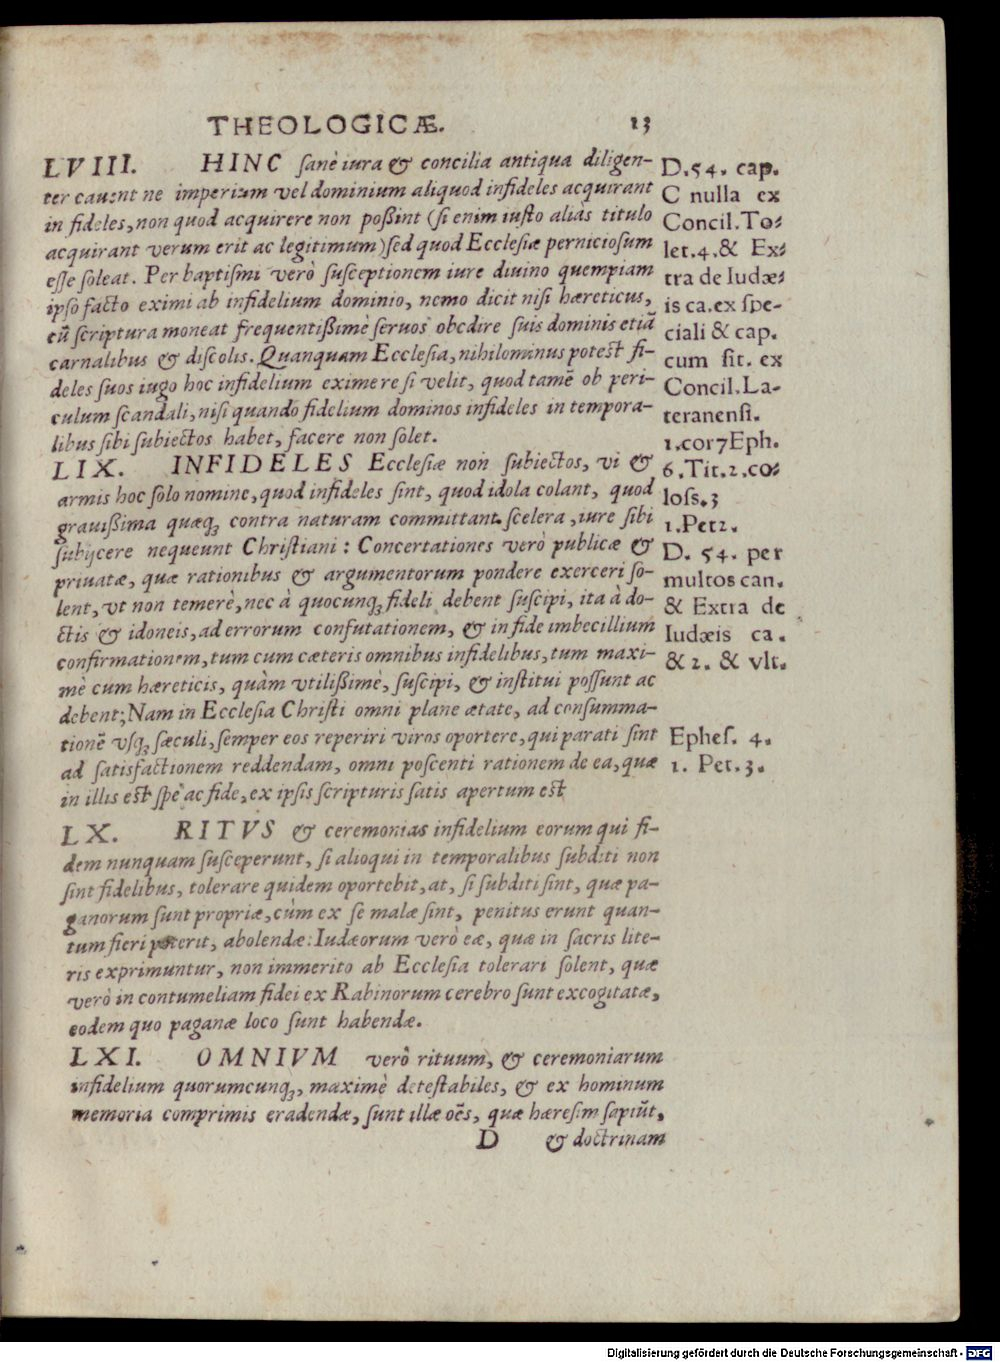 THEOLOGICÆ. 13
LVIII. HINC sanè iura & concilia antiqua diligen-
ter cauent ne imperium vel dominium aliquod infideles acquirant
in fideles, non quod acquirere non poßint (si enim iusto aliàs titulo
acquirant verum erit ac legitimum) sed quod Ecclesiæ perniciosum
esse soleat. Per baptismi verò susceptionem iure diuino quempiam
ipso facto eximi ab infidelium dominio, nemo dicit nisi hæreticus,
cū scriptura moneat frequentißimè seruos obedire suis dominis etiā
carnalibus & discolis. Quanquam Ecclesia, nihilominus potest fi-
deles suos iugo hoc infidelium eximere si velit, quod tamē ob peri-
culum scandali, nisi quando fidelium dominos infideles in tempora-
libus sibi subiectos habet, facere non solet.
LIX. INFIDELES Ecclesiæ non subiectos, vi &
armis hoc solo nomine, quod infideles sint, quod idola colant, quod
grauißima quæq; contra naturam committant scelera, iure sibi
subijcere nequeunt Christiani: Concertationes verò publicæ &
priuatæ, quæ rationibus & argumentorum pondere exerceri so-
lent, vt non temerè, nec à quocunq; fideli debent suscipi, ita à do-
ctis & idoneis, ad errorum confutationem, & in fide imbecillium
confirmationem, tum cum cæteris omnibus infidelibus, tum maxi-
mè cum hæreticis, quàm vtilißimè, suscipi, & institui possunt ac
debent; Nam in Ecclesia Christi omni plane ætate, ad consumma-
tionē vsq; sæculi, semper eos reperiri viros oportere, qui parati sint
ad satisfactionem reddendam, omni poscenti rationem de ea, quæ
in illis est spe ac fide, ex ipsis scripturis satis apertum est
LX. RITVS & ceremonias infidelium eorum qui fi-
dem nunquam susceperunt, si alioqui in temporalibus subditi non
sint fidelibus, tolerare quidem oportebit, at, si subditi sint, quæ pa-
ganorum sunt propriæ, cùm ex se malæ sint, penitus erunt quan-
tum fieri poterit, abolendæ: Iudæorum verò eæ, quæ in sacris lite-
ris exprimuntur, non immerito ab Ecclesia tolerari solent, quæ
verò in contumeliam fidei ex Rabinorum cerebro sunt excogitatæ,
eodem quo paganæ loco sunt habendæ.
LXI. OMNIVM verò rituum, & ceremoniarum
infidelium quorumcunq;, maximè detestabiles, & ex hominum
memoria comprimis eradendæ, sunt illæ oēs, quæ hæresim sapiūt,
D & doctrinam
D. 54. cap.
C nulla ex
Concil. To-
let. 4. & Ex-
tra de Iudæ-
is ca. ex spe-
ciali & cap.
cum sit. ex
Concil. La-
teranensi.
1. cor 7 Eph.
6. Tit. 2. co-
loss. 3
1. Pet 2.
D. 54. per
multos can.
& Extra de
Iudæis ca.
& 2. & vlt.
Ephes. 4.
1. Pet. 3.
Digitalisierung gefördert durch die Deutsche Forschungsgemeinschaft - DFG